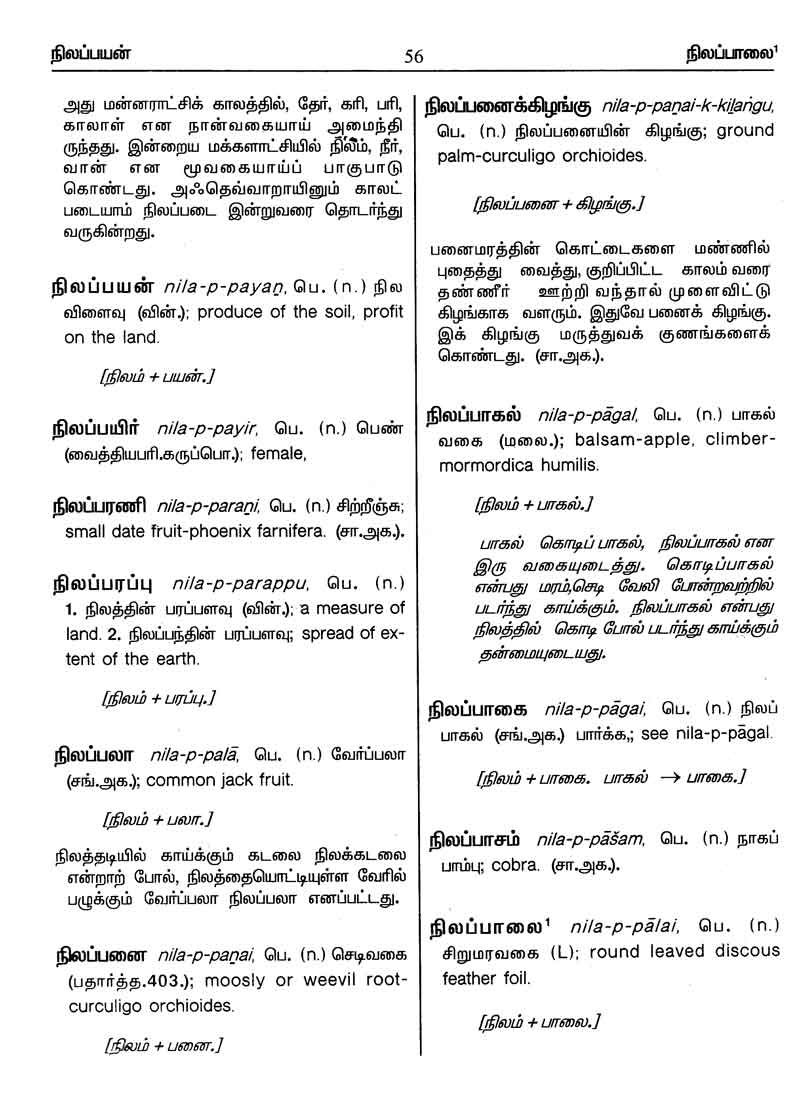 நிலப்பயன்
56
நிலப்பாலை¹
அது மன்னராட்சிக் காலத்தில், தேர், கரி, பரி,
காலாள் என நான்வகையாய் அமைந்தி
ருந்தது. இன்றைய மக்களாட்சியில் நிலம், நீர்,
வான் என மூவகையாய்ப் பாகுபாடு
கொண்டது. அஃதெவ்வாறாயினும் காலட்
படையாம் நிலப்படை இன்றுவரை தொடர்ந்து
வருகின்றது.
நிலப்பயன் nila-p-payaṉ, பெ. (n.) நில
விளைவு (வின்.); produce of the soil, profit
on the land.
[நிலம் + பயன்.]
நிலப்பயிர் nila-p-payir, பெ. (n.) பெண்
(வைத்தியபரி.கருப்பொ.); female,
நிலப்பரணி nila-p-paraṉi, பெ. (n.) சிற்றீஞ்சு;
small date fruit-phoenix farnifera. (சா.அக.).
நிலப்பரப்பு nila-p-parappu, பெ. (n.)
1. நிலத்தின் பரப்பளவு (வின்.); a measure of
land. 2. நிலப்பந்தின் பரப்பளவு; spread of ex-
tent of the earth.
[நிலம் + பரப்பு.]
நிலப்பலா nila-p-palā, பெ. (n.) வேர்ப்பலா
(சங்.அக.); common jack fruit.
[நிலம் + பலா.]
நிலத்தடியில் காய்க்கும் கடலை நிலக்கடலை
என்றாற் போல், நிலத்தையொட்டியுள்ள வேரில்
பழுக்கும் வேர்ப்பலா நிலப்பலா எனப்பட்டது.
நிலப்பனை nila-p-paṉai, பெ. (n.) செடிவகை
(பதார்த்த.403.); moosly or weevil root-
curculigo orchioides.
[நிலம் + பனை.]
நிலப்பனைக்கிழங்கு nila-p-paṉai-k-kiḻaṅgu,
பெ. (n.) நிலப்பனையின் கிழங்கு; ground
palm-curculigo orchioides.
[நிலப்பனை + கிழங்கு.]
பனைமரத்தின் கொட்டைகளை மண்ணில்
புதைத்து வைத்து, குறிப்பிட்ட காலம் வரை
தண்ணீர் ஊற்றி வந்தால் முளைவிட்டு
கிழங்காக வளரும். இதுவே பனைக் கிழங்கு.
இக் கிழங்கு மருத்துவக் குணங்களைக்
கொண்டது. (சா.அக.).
நிலப்பாகல் nila-p-pāgal, பெ. (n.) பாகல்
வகை (மலை.); balsam-apple, climber-
mormordica humilis.
[நிலம் + பாகல்.]
பாகல் கொடிப் பாகல், நிலப்பாகல் என
இரு வகையுடைத்து. கொடிப்பாகல்
என்பது மரம்,செடி வேலி போன்றவற்றில்
படர்ந்து காய்க்கும். நிலப்பாகல் என்பது
நிலத்தில் கொடி போல் படர்ந்து காய்க்கும்
தன்மையுடையது.
நிலப்பாகை nila-p-pāgai, பெ. (n.) நிலப்
பாகல் (சங்.அக.) பார்க்க,; see nila-p-pāgal.
[நிலம் + பாகை. பாகல் → பாகை.]
நிலப்பாசம் nila-p-pāšam, பெ. (n.) நாகப்
பாம்பு; cobra. (சா.அக.).
நிலப்பாலை¹ nila-p-pālai, பெ. (n.)
சிறுமரவகை (L); round leaved discous
feather foil.
[நிலம் + பாலை.]